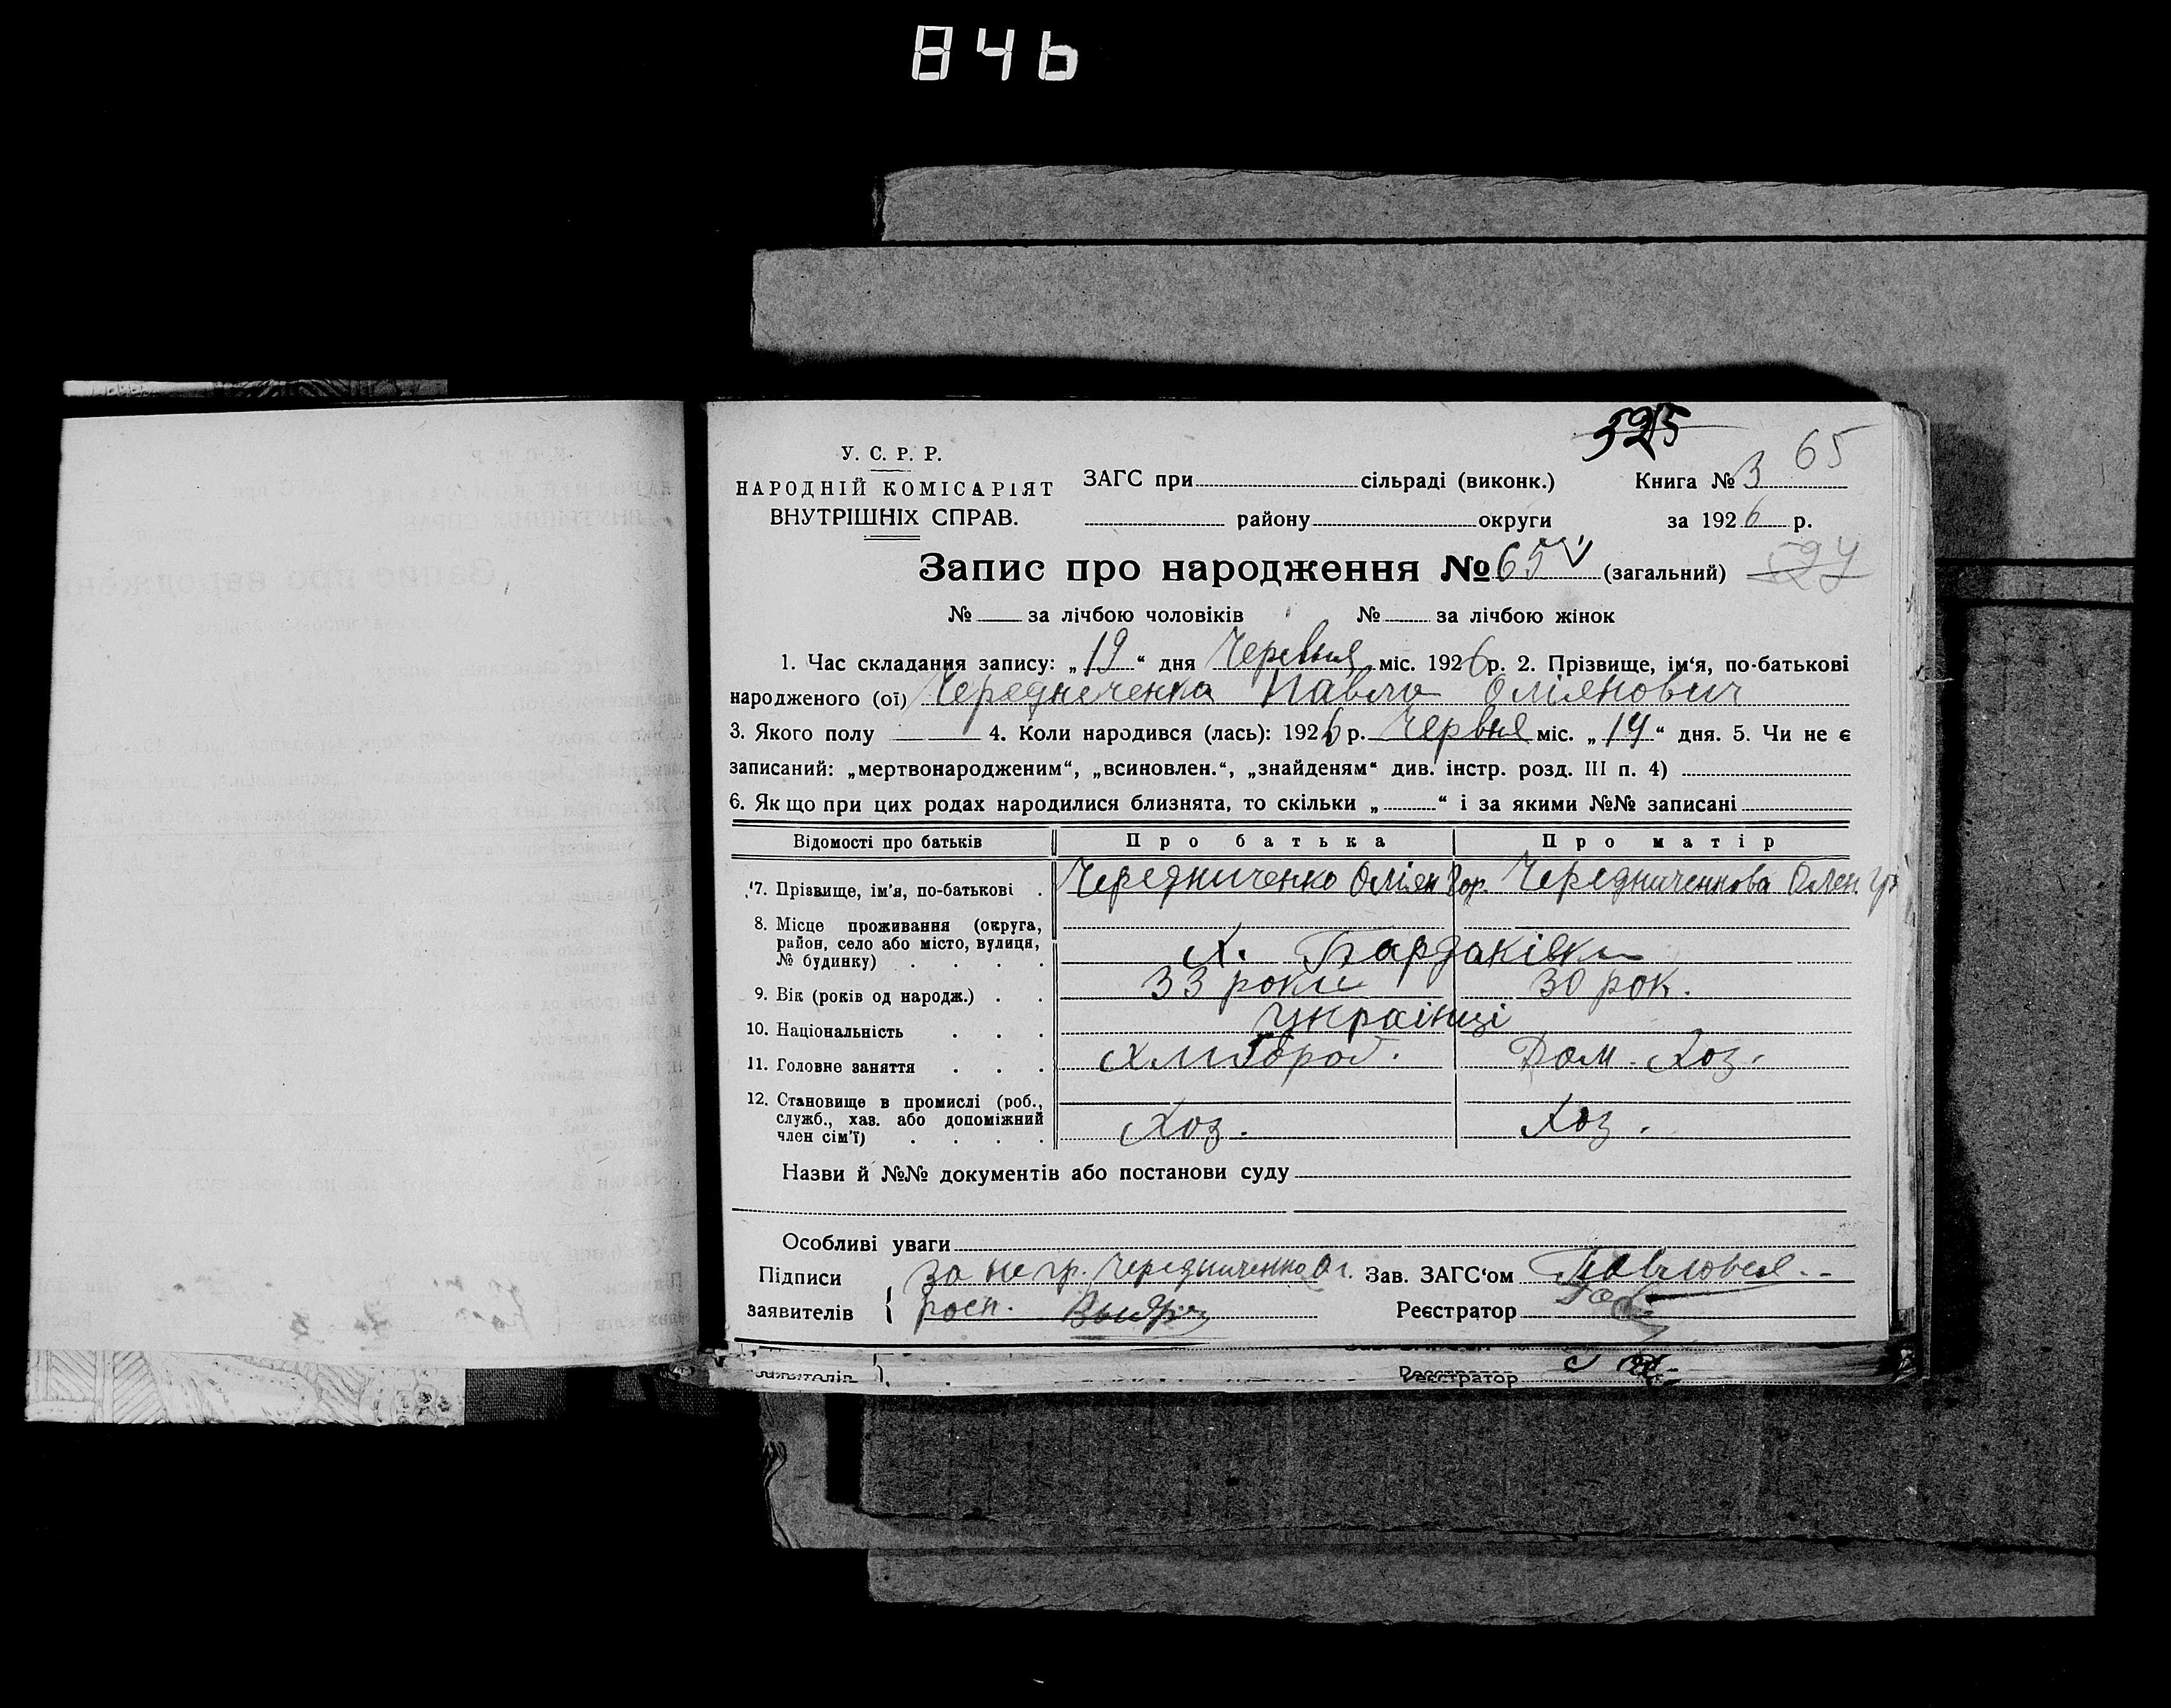 846
325
65
У. С. Р. Р.
НАРОДНІЙ КОМІСАРІЯТ
ВНУТРІШНІХ СПРАВ.
ЗАГС при сільраді (виконк.) Книга № 3
району округи за 1926 р.
Запис про народження № 65 (загальний) 527
№ за лічбою чоловіків № за лічбою жінок
1. Час складання запису: „19“ дня Червня міс. 1926 р. 2. Прізвище, ім‘я, по-батькові
народженого (ої) Чередниченко Павло Оміянович
3. Якого полу 4. Коли народився (лась): 1926 р. Червня міс. „14“ дня. 5. Чи не є
записаний: „мертвонародженим“, „всиновлен.“, „знайденям“ див. інстр. розд. III п. 4)
6. Якщо при цих родах народилися близнята, то скільки „ “ і за якими №№ записані
Відомості про батьків Про батька Про матір
7. Прізвище, ім'я, по-батькові Чередниченко Оміян Гор. Чередниченкова Олен. Гр
8. Місце проживання (округа,
район, село або місто, вулиця,
№ будинку) х. Бардаківка
9. Вік (років од народж.) 33 роки 30 рок.
10. Національність Українці
11. Головне заняття Хлібороб. Дом. Хоз.
12. Становище в промислі (роб.,
служб., хаз. або допоміжний
член сім'ї) Хоз. Хоз.
Назви й №№ документів або постанови суду
Особливі уваги
Підписи за не гр. Чередниченко О г. Зав. ЗАГС‘ом
заявителів росп. Реєстратор
заявителів Реєстратор